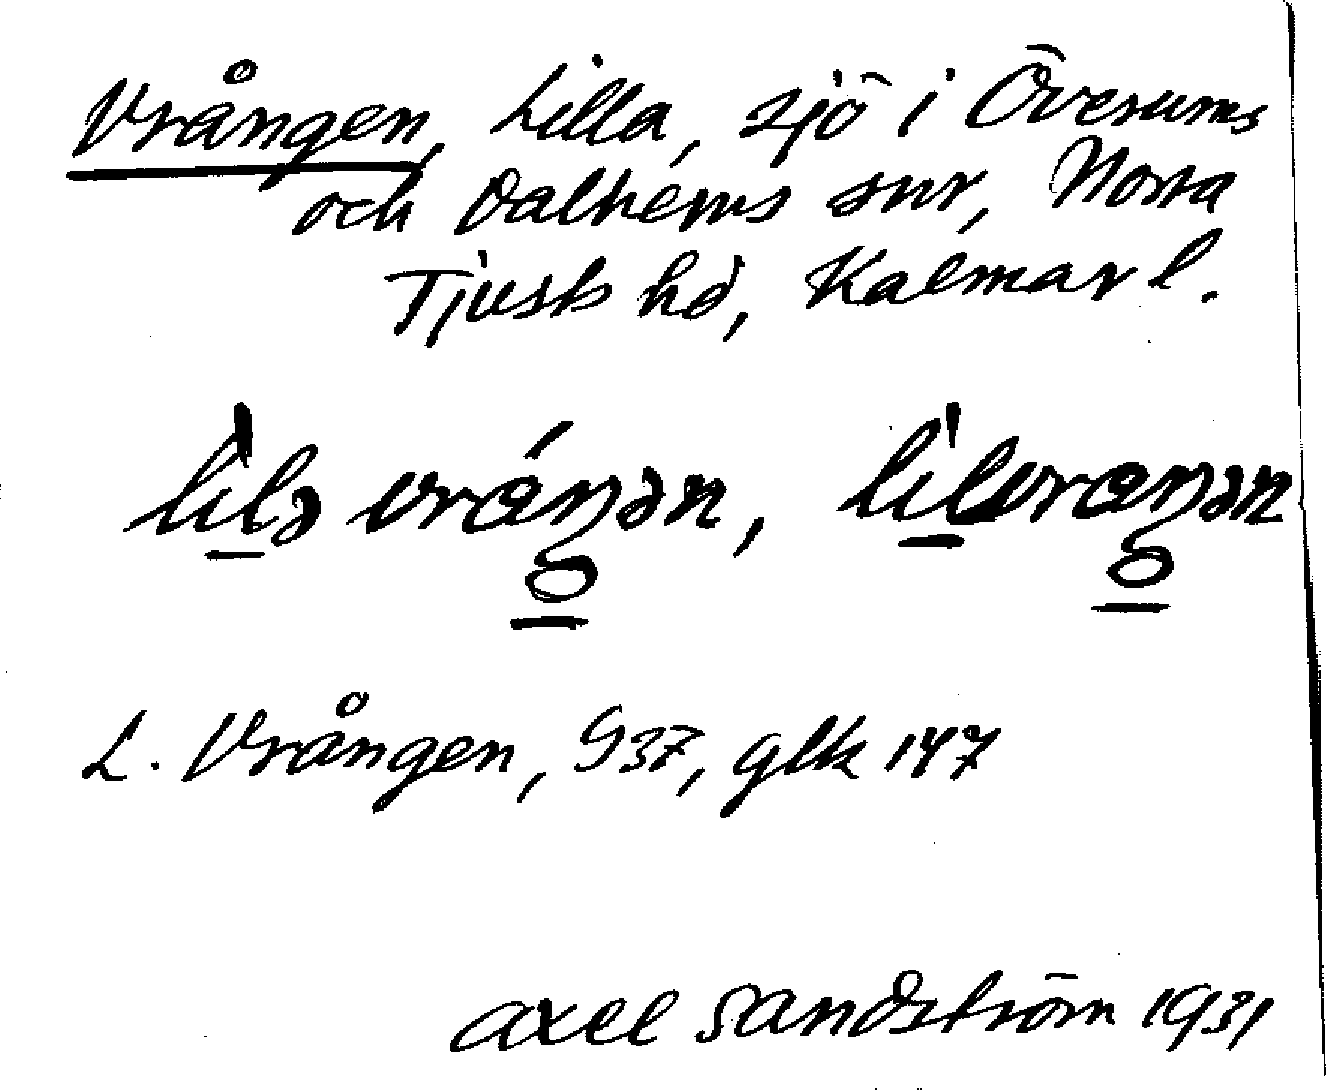 Vrången, Lilla, sjö i Överums
och Dalhems snr, Norra
Tjusts hd, Kalmar l.
lilə vráŋən, lilvraŋən
L. Vrången, G37, glk 147
Axel Sandström 1931